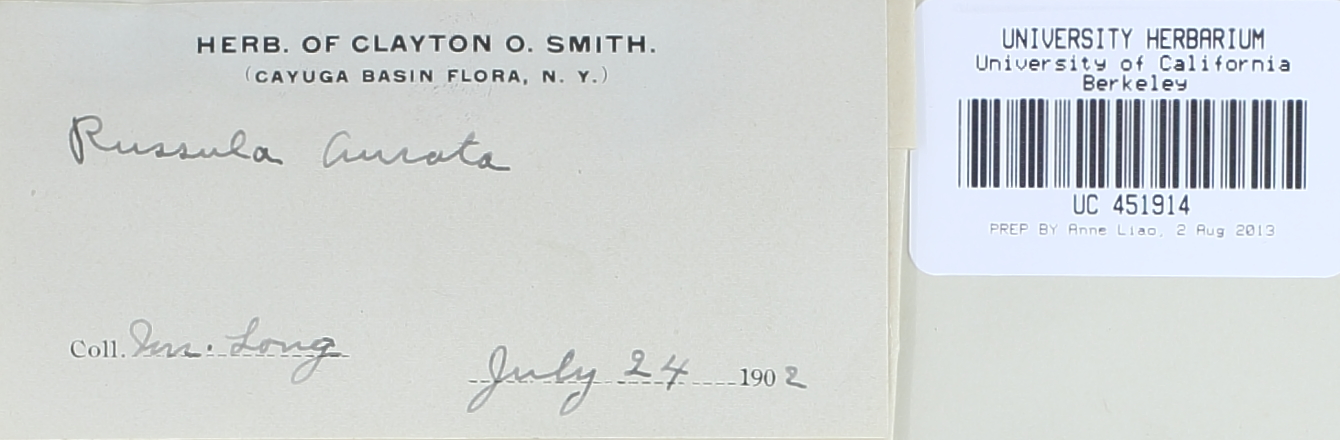 HERB. OF CLAYTON O. SMITH.
(CAYUGA BASIN FLORA, N. Y.)
Russula aurata
Coll. Mr. Long
July 24 1902
UNIVERSITY HERBARIUM
University of California
Berkeley
UC 451914
PREP BY Anne Liao, 2 Aug 2013